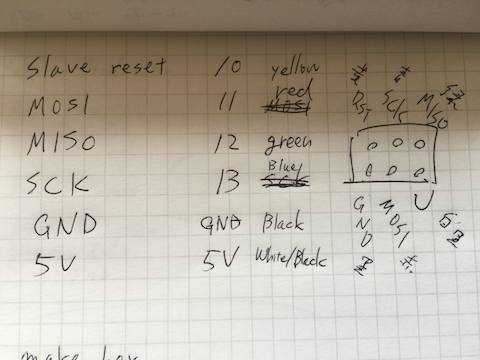 Slave reset 10 yellow
MOSI 11 red
MISO 12 green
SCK 13 Blue
GND GND Black
5V 5V White/Black
RST SCK MISO
GND MOSI U
make